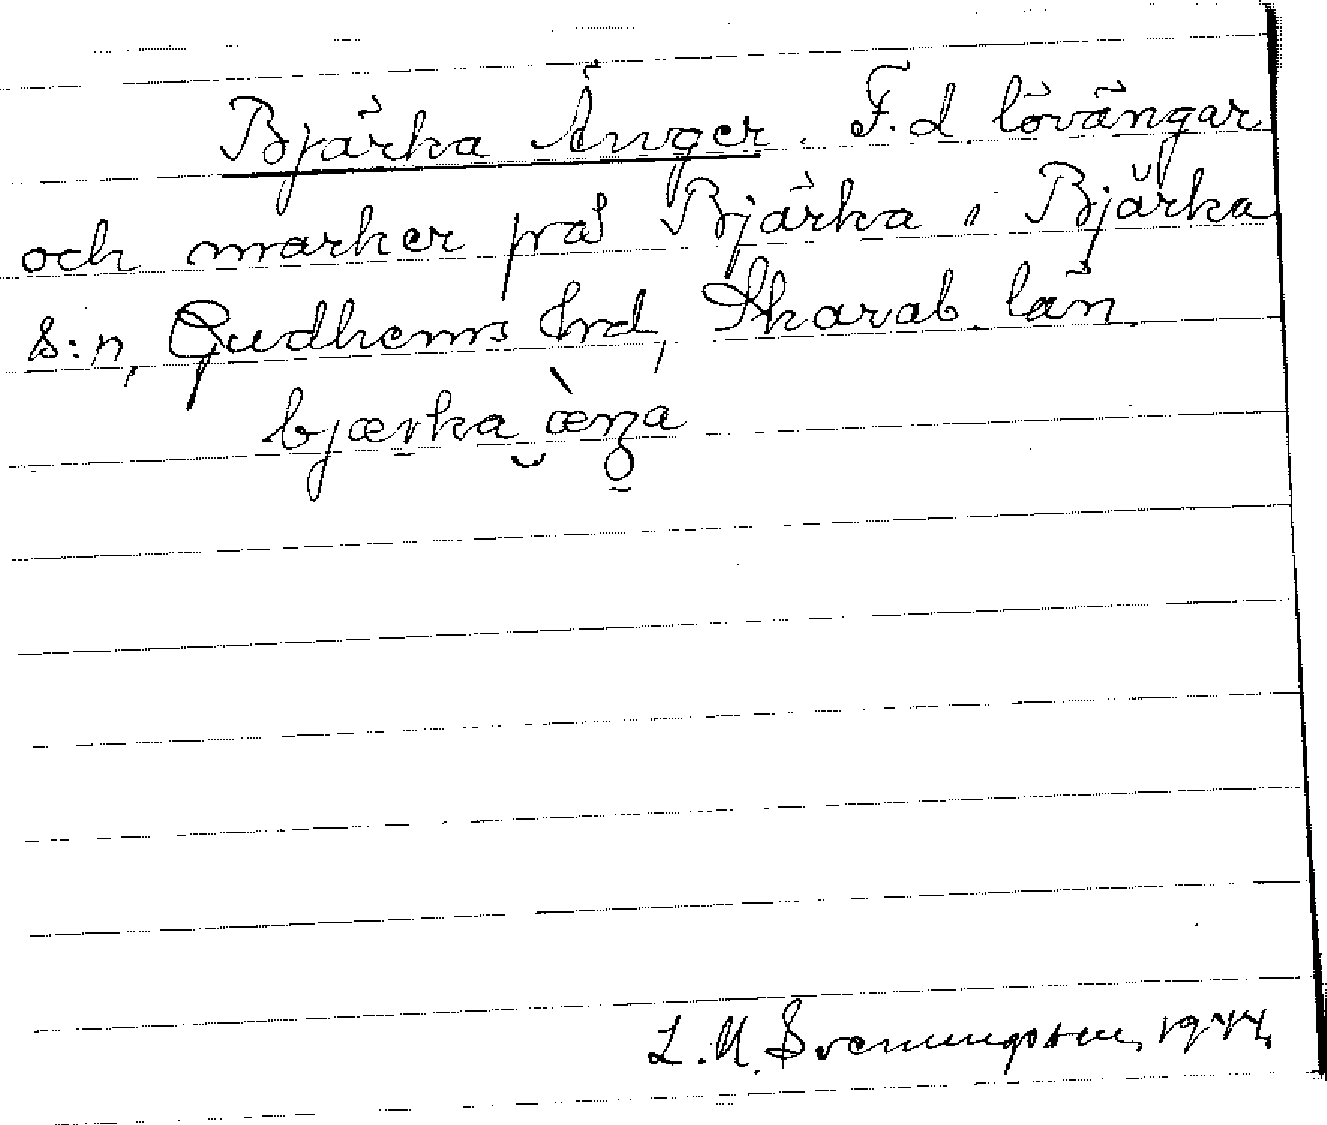 Bjärka Änger. F.d lövängar
och marker på Bjärka i Bjärka
s:n, Gudhems hrd, Skarab. län.
bjærka æŋa
L.M. Svenungsson, 1944.